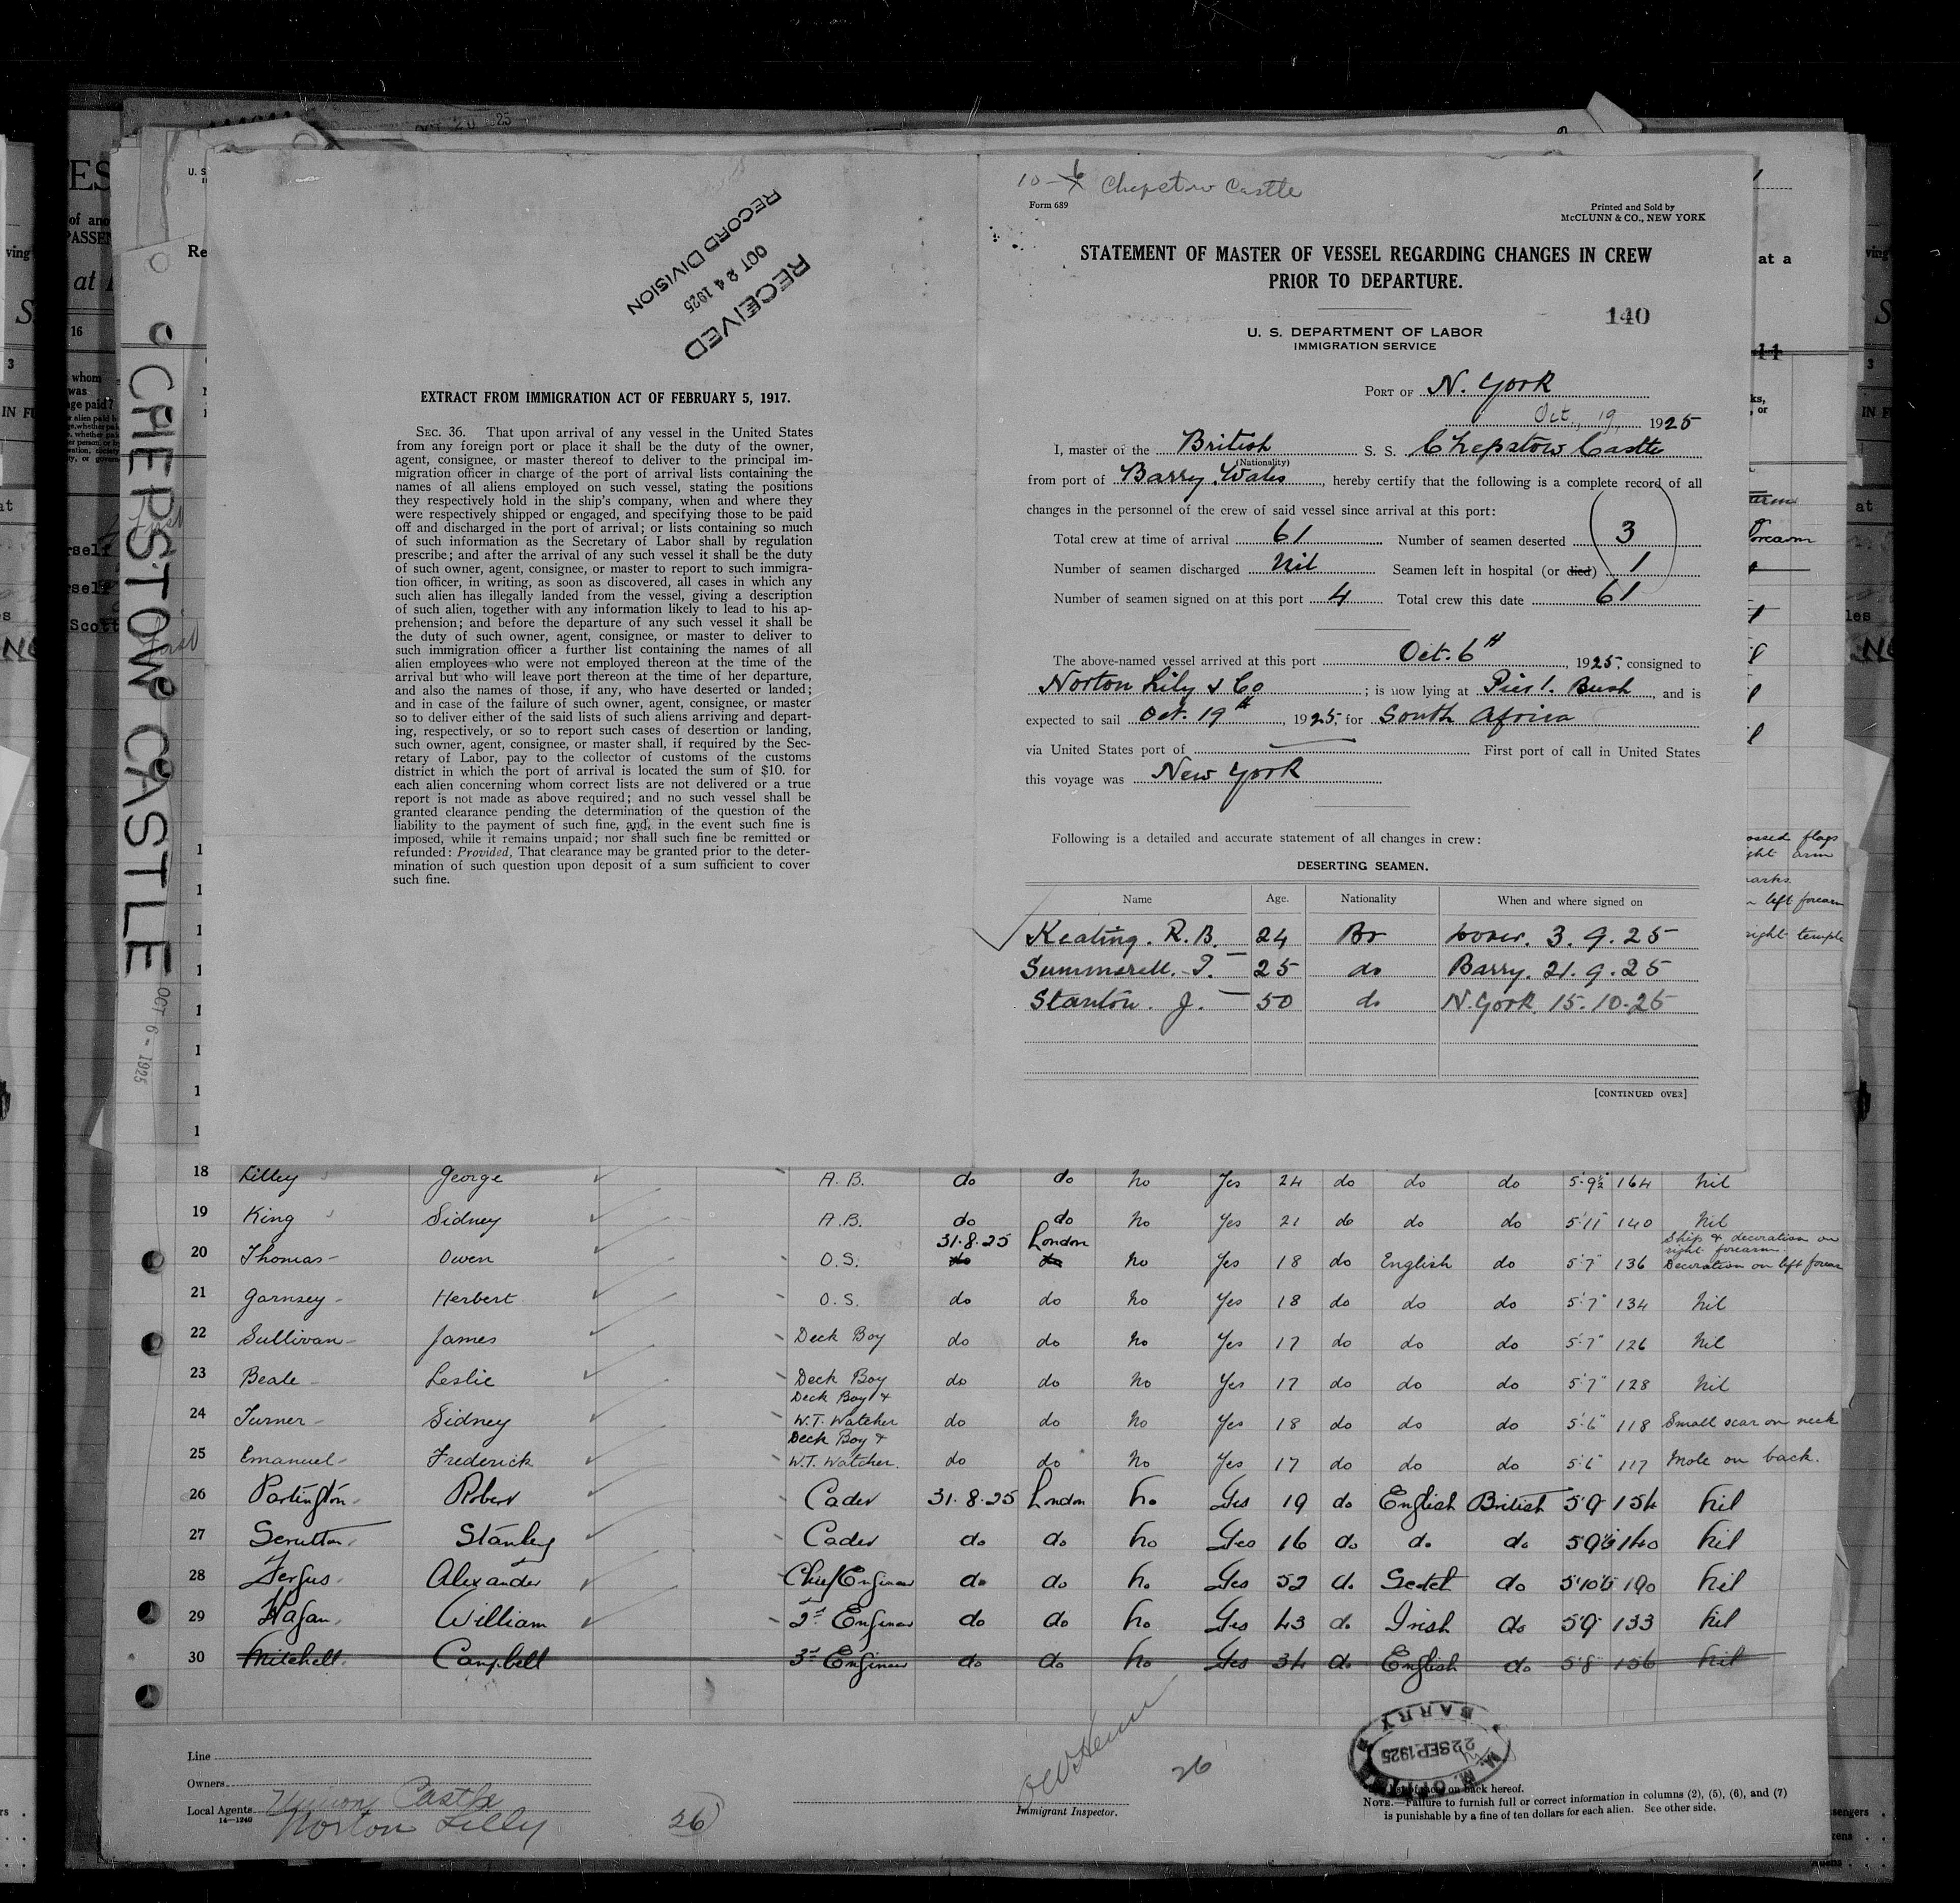 CHEPSTOW CASTLE
OCT 6 - 1925
RECEIVED
OCT 24 1925
RECORD DIVISION
EXTRACT FROM IMMIGRATION ACT OF FEBRUARY 5, 1917.
SEC. 36. That upon arrival of any vessel in the United States
from any foreign port or place it shall be the duty of the owner,
agent, consignee, or master thereof to deliver to the principal im-
migration officer in charge of the port of arrival lists containing the
names of all aliens employed on such vessel, stating the positions
they respectively hold in the ship's company, when and where they
were respectively shipped or engaged, and specifying those to be paid
off and discharged in the port of arrival; or lists containing so much
of such information as the Secretary of Labor shall by regulation
prescribe; and after the arrival of any such vessel it shall be the duty
of such owner, agent, consignee, or master to report to such immigra-
tion officer, in writing, as soon as discovered, all cases in which any
such alien has illegally landed from the vessel, giving a description
of such alien, together with any information likely to lead to his ap-
prehension; and before the departure of any such vessel it shall be
the duty of such owner, agent, consignee, or master to deliver to
such immigration officer a further list containing the names of all
alien employees who were not employed thereon at the time of the
arrival but who will leave port thereon at the time of her departure,
and also the names of those, if any, who have deserted or landed;
and in case of the failure of such owner, agent, consignee, or master
so to deliver either of the said lists of such aliens arriving and depart-
ing, respectively, or so to report such cases of desertion or landing,
such owner, agent, consignee, or master shall, if required by the Sec-
retary of Labor, pay to the collector of customs of the customs
district in which the port of arrival is located the sum of $10. for
each alien concerning whom correct lists are not delivered or a true
report is not made as above required; and no such vessel shall be
granted clearance pending the determination of the question of the
liability to the payment of such fine, and, in the event such fine is
imposed, while it remains unpaid; nor shall such fine be remitted or
refunded: Provided, That clearance may be granted prior to the deter-
mination of such question upon deposit of a sum sufficient to cover
such fine.
10-6 Chepstow Castle
Form 689
Printed and Sold by
McCLUNN & CO., NEW YORK
STATEMENT OF MASTER OF VESSEL REGARDING CHANGES IN CREW
PRIOR TO DEPARTURE.
140
U. S. DEPARTMENT OF LABOR
IMMIGRATION SERVICE
PORT OF N. York
Oct. 19, 1925
I, master of the British S. S. Chepstow Castle
(Nationality)
from port of Barry Wales, hereby certify that the following is a complete record of all
changes in the personnel of the crew of said vessel since arrival at this port:
Total crew at time of arrival 61 Number of seamen deserted 3
Number of seamen discharged Nil Seamen left in hospital (or died) 1
Number of seamen signed on at this port 4 Total crew this date 61
The above-named vessel arrived at this port Oct. 6th, 1925, consigned to
Norton Lily & Co; is now lying at Pier 1. Bush, and is
expected to sail Oct. 19th, 1925, for South Africa
via United States port of First port of call in United States
this voyage was New York
Following is a detailed and accurate statement of all changes in crew:
DESERTING SEAMEN.
Name Age. Nationality When and where signed on
Keating. R. B. 24 Br Dover. 3. 9. 25
Summerell. T. 25 do Barry. 21. 9. 25
Stanton. J. 50 do N. York. 15. 10. 25
[CONTINUED OVER]
18 Lilley George A. B. do do No Yes 24 do do do 5'9½ 164 Nil
19 King Sidney A.B. do do No Yes 21 do do do 5'11" 140 Nil
20 Thomas Owen O.S. 31.8.25 London do do No Yes 18 do English do 5'7" 136 Ship & decoration on right forearm. Decoration on left forearm
21 Garnsey Herbert O.S. do do No Yes 18 do do do 5'7" 134 Nil
22 Sullivan James Deck Boy do do No Yes 17 do do do 5'7" 126 Nil
23 Beale Leslie Deck Boy do do No Yes 17 do do do 5'7" 128 Nil
24 Turner Sidney Deck Boy & W.T. Watcher do do No Yes 18 do do do 5'6" 118 Small scar on neck
25 Emanuel Frederick Deck Boy & W.T. Watcher. do do No Yes 17 do do do 5'6" 117 Mole on back.
26 Partington Robert Cadet 31.8.25 London No Yes 19 do English British 5'9" 154 Nil
27 Scrutton Stanley Cadet do do No Yes 16 do do do 5'9½ 140 Nil
28 Fergus Alexander Chief Engineer do do No Yes 52 do Scotch do 5'10½ 190 Nil
29 Hagan William 2nd Engineer do do No Yes 43 do Irish do 5'9" 133 Nil
30 Mitchell Campbell 3rd Engineer do do No Yes 34 do English do 5'8 156 Nil
Line
Owners Union Castle
Local Agents Norton Lilly
14—1240
26
26
Immigrant Inspector.
BARRY
22 SEP 1925
on back hereof.
NOTE.—Failure to furnish full or correct information in columns (2), (5), (6), and (7)
is punishable by a fine of ten dollars for each alien. See other side.